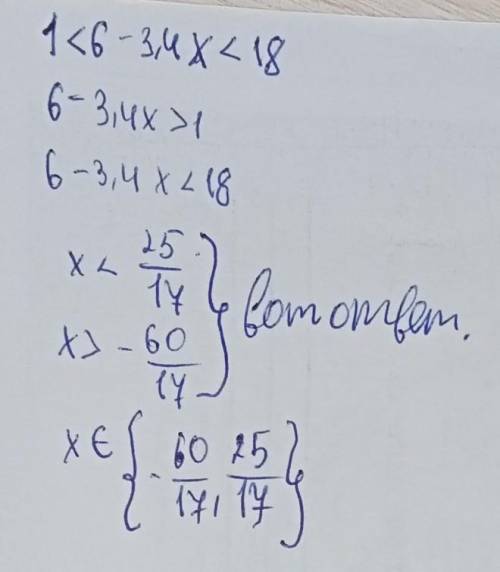 1<6-3,4x<18
6-3,4x>1
6-3,4x<18
x< 25/17
x> -60/17
} вот ответ.
x∈{-60/17, 25/17}